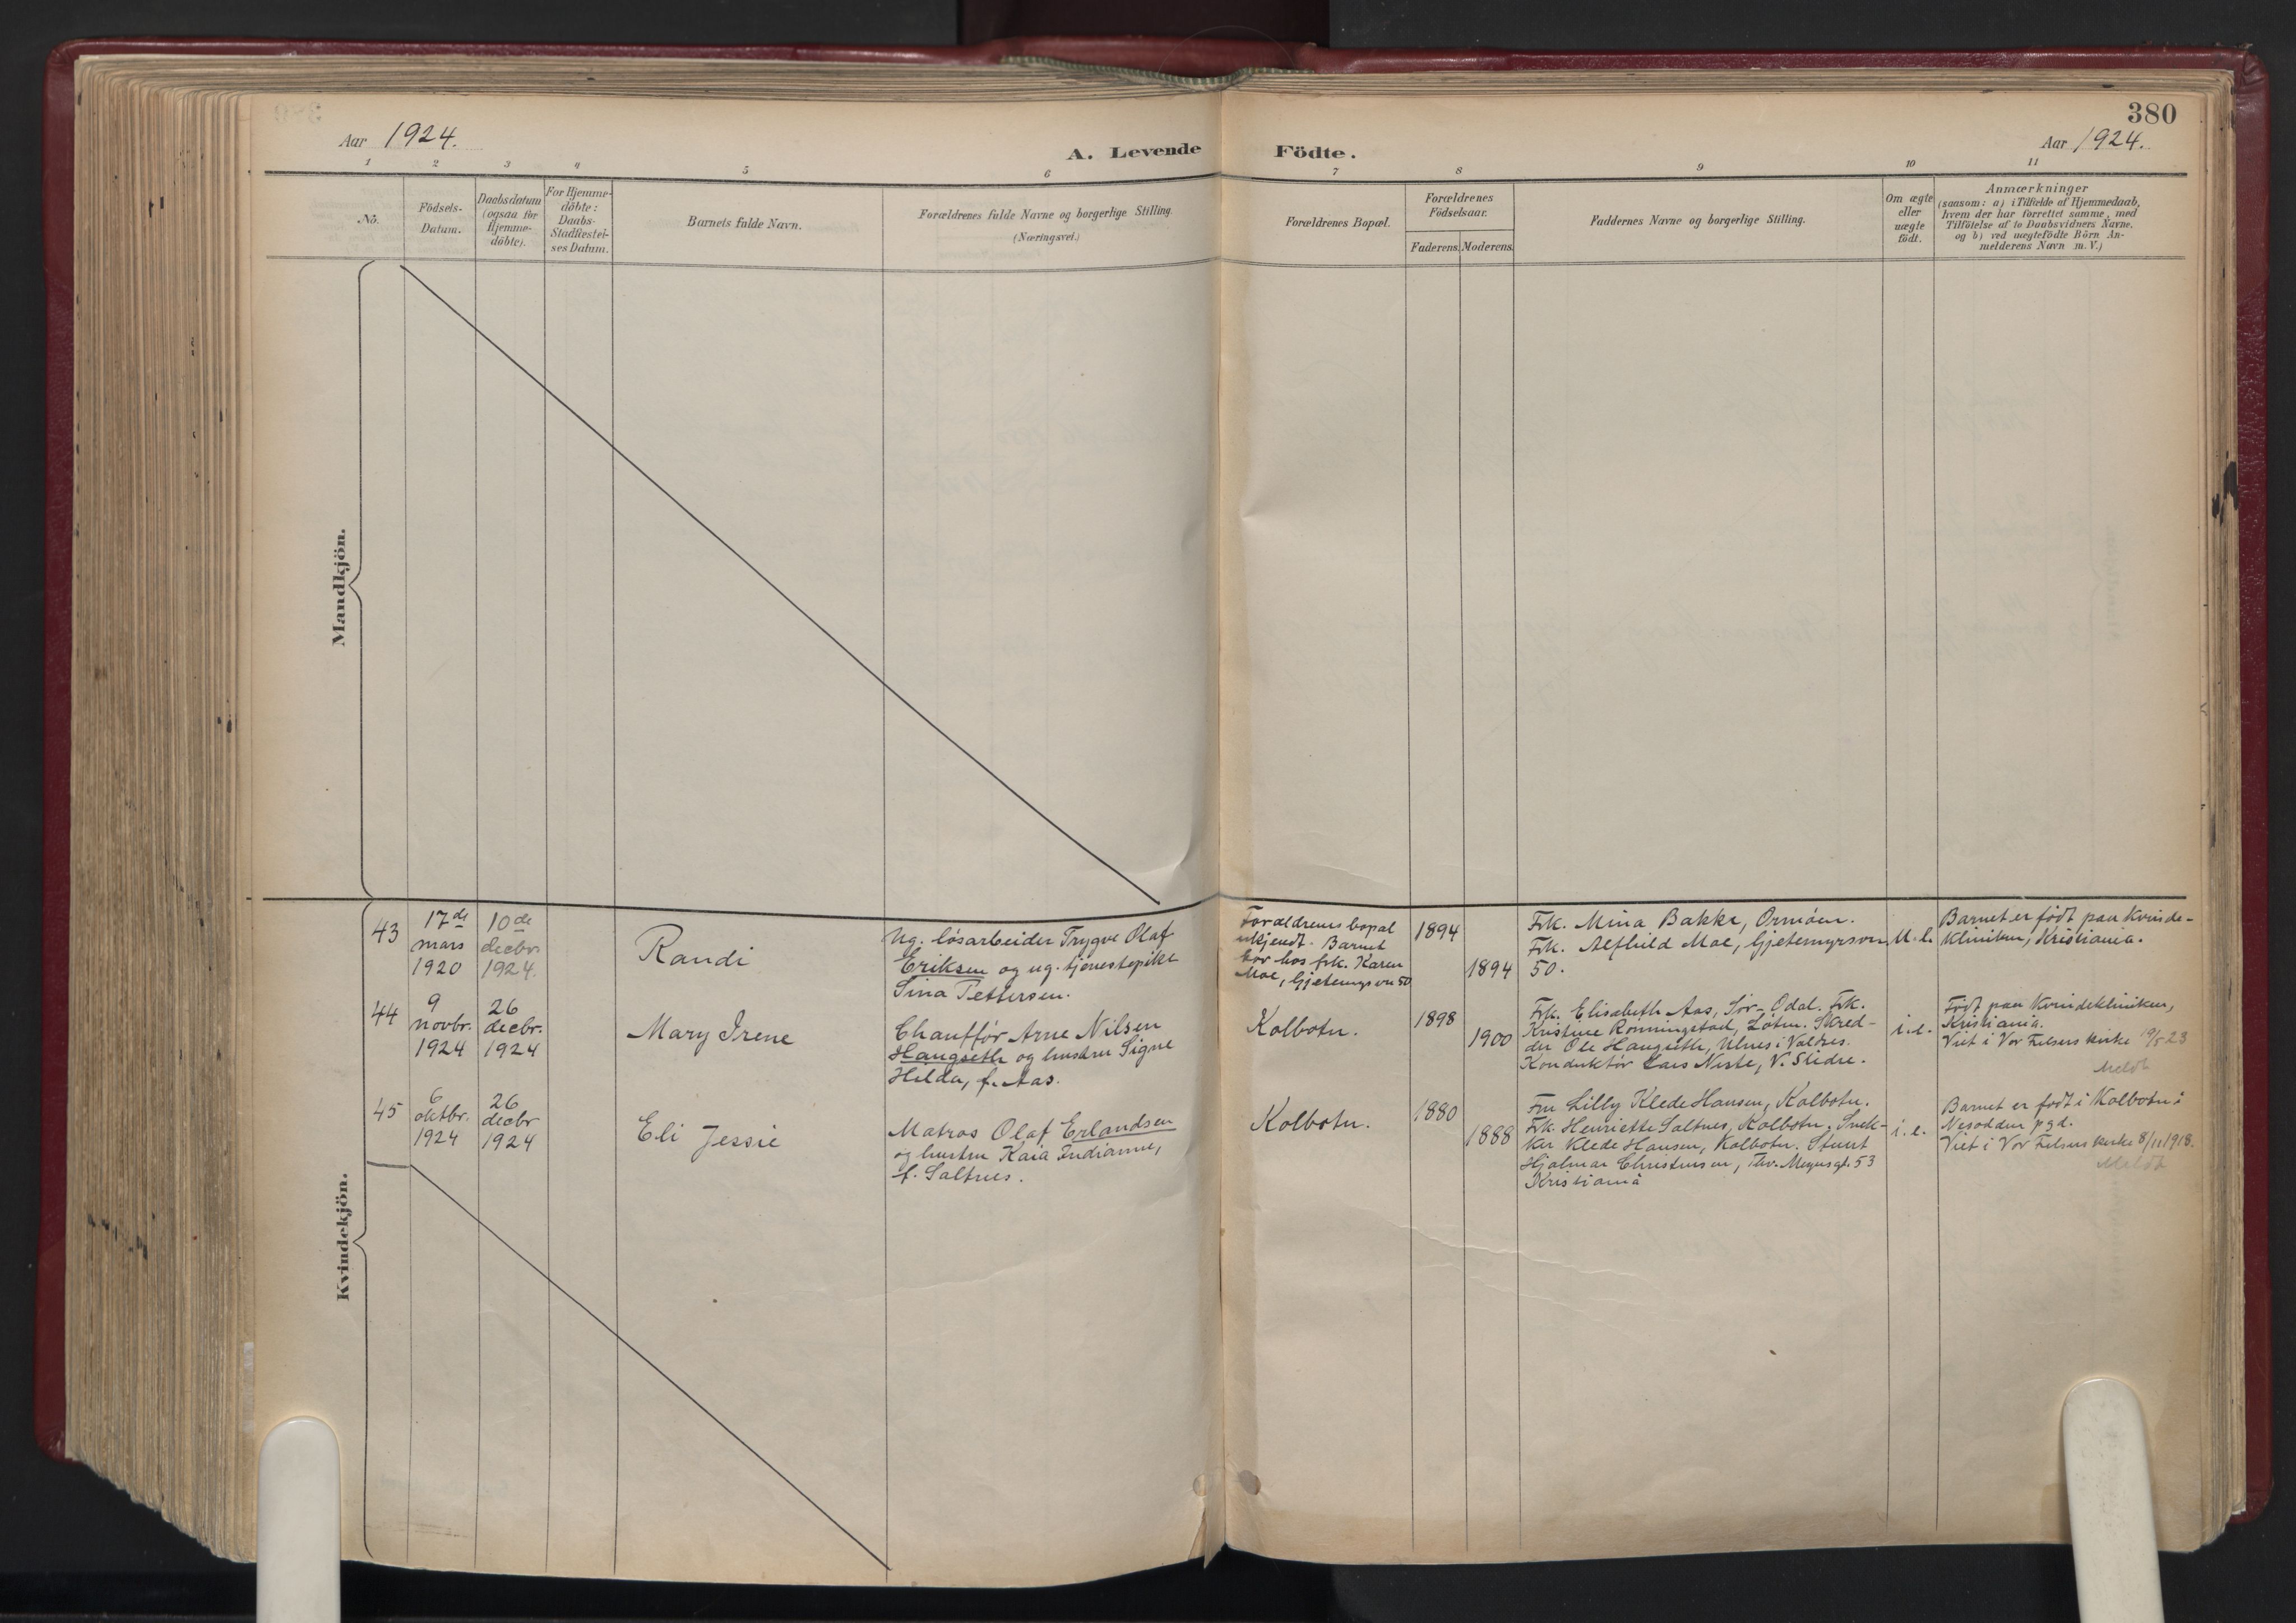 380
Aar 1924.
A. Levende Födte.
Aar 1924.
1 2 3 4 5 6 7 8 9 10 11
No.
Födsels-
Datum.
Daabsdatum
(ogsaa for
Hjemme-
döbte).
For Hjemme-
döbte:
Daabs-
Stadfestel-
ses Datum.
Barnets fulde Navn.
Forældrenes fulde Navne og borgerlige Stilling.
(Næringsvei.)
Forældrenes Bopæl.
Forældrenes
Födselsaar.
Faderens. Moderens.
Faddernes Navne og borgerlige Stilling.
Om ægte
eller
uægte
födt.
Anmærkninger
(saasom: a) i Tilfælde af Hjemmedaab,
hvem der har forrettet samme, med
Tilföielse af to Daabsvidners Navne,
og b) ved uægtefödte Börn An-
melderens Navn m. V.)
Mandkjön.
Kvindekjön.
43
17de
mars
1920
10de
decbr.
1924.
Randi
Ug. lösarbeider Trygve Olaf
Eriksen og ug. tjenestepike
Sina Pettersen.
Forældrenes bopæl
ukjendt. Barnet
bor hos frk. Karen
Moe, Gjetemyrsvn 50
1894
1894
Frk. Mina Bakke, Ormöen.
Frk. Alfhild Moe, Gjetemyrsvn
50.
U. e.
Barnet er född paa Kvinde-
kliniken, Kristiania.
44
9
novbr.
1924
26
decbr.
1924
Mary Irene
Chaufför Arne Nilsen
Haugseth og hustru Signe
Hilda, f. Aas.
Kolbotn.
1898
1900
Frk. Elisabeth Aas, Sör-Odal. Frk.
Kristine Rönningstad, Löten. Skred-
der Ole Haugseth, Ulnes i Valdres.
Konduktör Lars Neste, V. Slidre.
i. e.
Född paa Kvindekliniken,
Kristiania.
Viet i Vor Frelsers kirke 19/5 23
Meldt
45
6
oktbr.
1924
26
decbr
1924
Eli Jessie
Matros Olaf Erlandsen
og hustru Kaia Indianne,
f. Saltnes.
Kolbotn.
1880
1888
Fru Lilly Klede Hansen, Kolbotn.
Frk. Henriette Saltnes, Kolbotn. Snek-
ker Klede Hansen, Kolbotn. Stuert
Hjalmar Christensen, Thv. Meyersgt. 53
Kristiania
i. e.
Barnet er född i Kolbotn i
Nesodden pgd.
Viet i Vor Frelsers kirke 8/11 1918.
Meldt